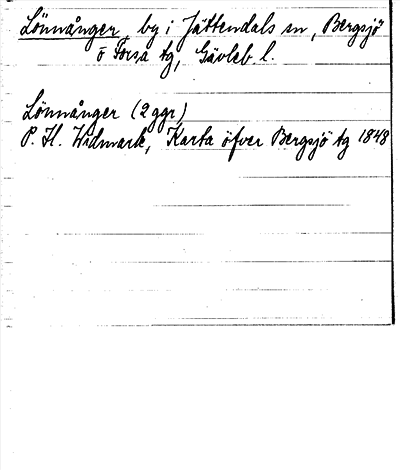 Lönnånger, by i Jättendals sn, Bergsjö
o Forsa tg, Gävleb. l.
Lönnånger (2 ggr)
P. H. Widmark, Karta öfver Bergsjö tg 1848